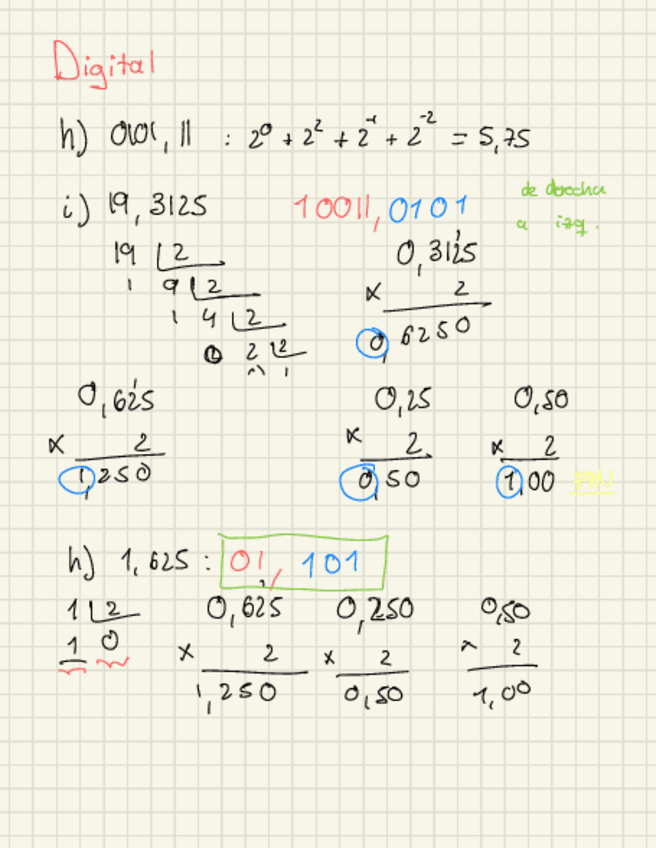 Digital
h) 0101, 11 : 2⁰ + 2² + 2⁻¹ + 2⁻² = 5,75
i) 19, 3125 10011, 0101 de derecha
a izq.
19 2 0,3125
1 9 2 x 2
1 4 2 0, 6250
0 2 2
0 1
0,625 0,25 0,50
x 2 x 2 x 2
1,250 0,50 1,00
h) 1,625 : 01, 101
1 2 0,625 0,250 0,50
1 0 x 2 x 2 x 2
1,250 0,50 1,00